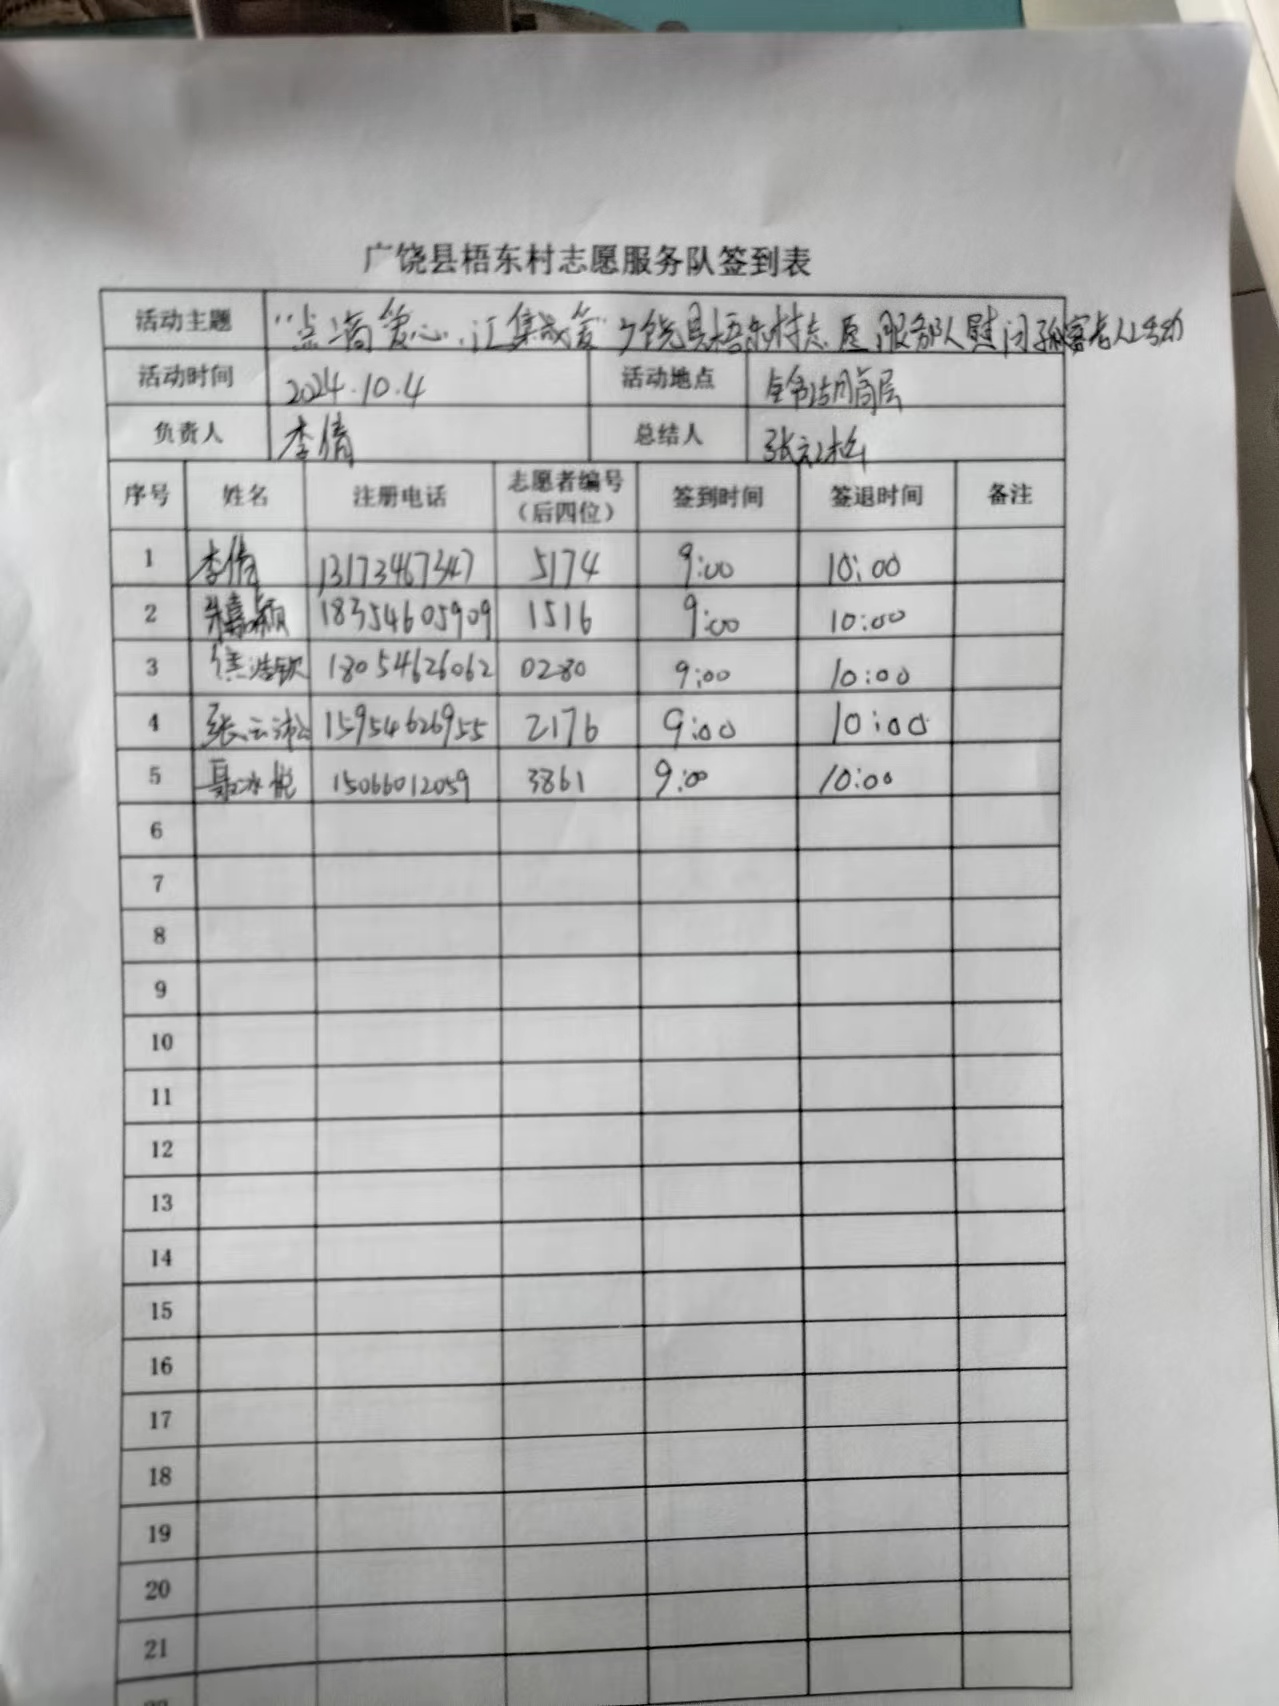 广饶县梧东村志愿服务队签到表
活动主题 "点滴爱心,汇集成爱"广饶县梧东村志愿服务队慰问孤寡老人活动
活动时间 2024.10.4 活动地点 高层
负责人 李倩 总结人 张云松
序号 姓名 注册电话 志愿者编号（后四位） 签到时间 签退时间 备注
1 李倩 13173467347 5174 9:00 10:00
2 朱嘉颖 18354605909 1516 9:00 10:00
3 18054626062 0280 9:00 10:00
4 张云淞 15954626955 2176 9:00 10:00
5 聂冰悦 15066012059 3861 9:00 10:00
6
7
8
9
10
11
12
13
14
15
16
17
18
19
20
21